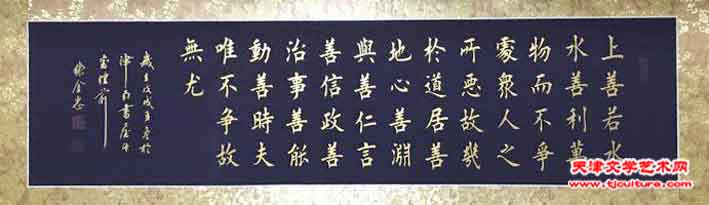 上善若水
水善利萬
物而不爭
處衆人之
所惡故幾
於道居善
地心善淵
與善仁言
善信政善
治事善能
動善時夫
唯不爭故
無尤
天津文学艺术网
www.tjculture.com